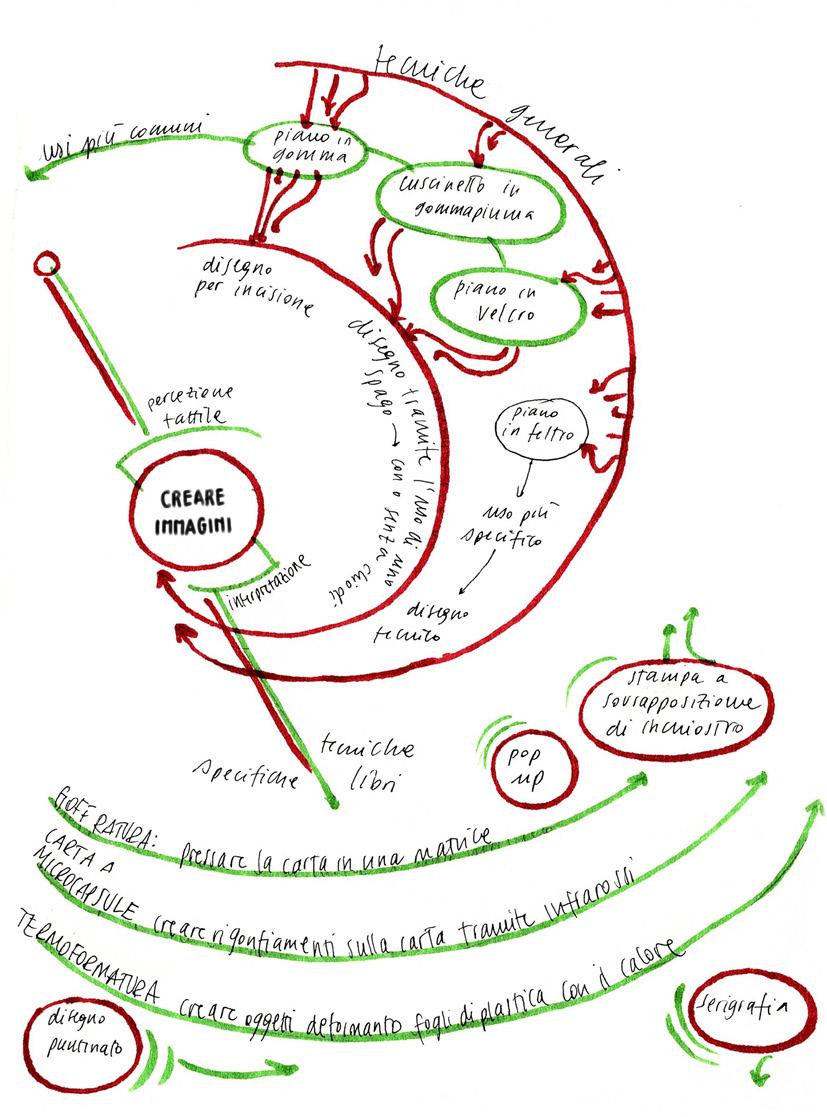 tecniche generali
usi più comuni
piano in
gomma
cuscinetto in
gommapiuma
piano in
velcro
disegno
per incisione
disegno tramite l'uso di uno
spago → con o senza chiodi
piano
in feltro
uso più
specifico
disegno
tecnico
percezione
tattile
CREARE
IMMAGINI
interpretazione
specifiche
tecniche
libri
stampa a
sovrapposizione
di inchiostro
pop
up
GOFFRATURA: pressare la carta in una matrice
CARTA A
MICROCAPSULE creare rigonfiamenti sulla carta tramite infrarossi
TERMOFORMATURA creare oggetti deformanto fogli di plastica con il calore
disegno
puntinato
serigrafia